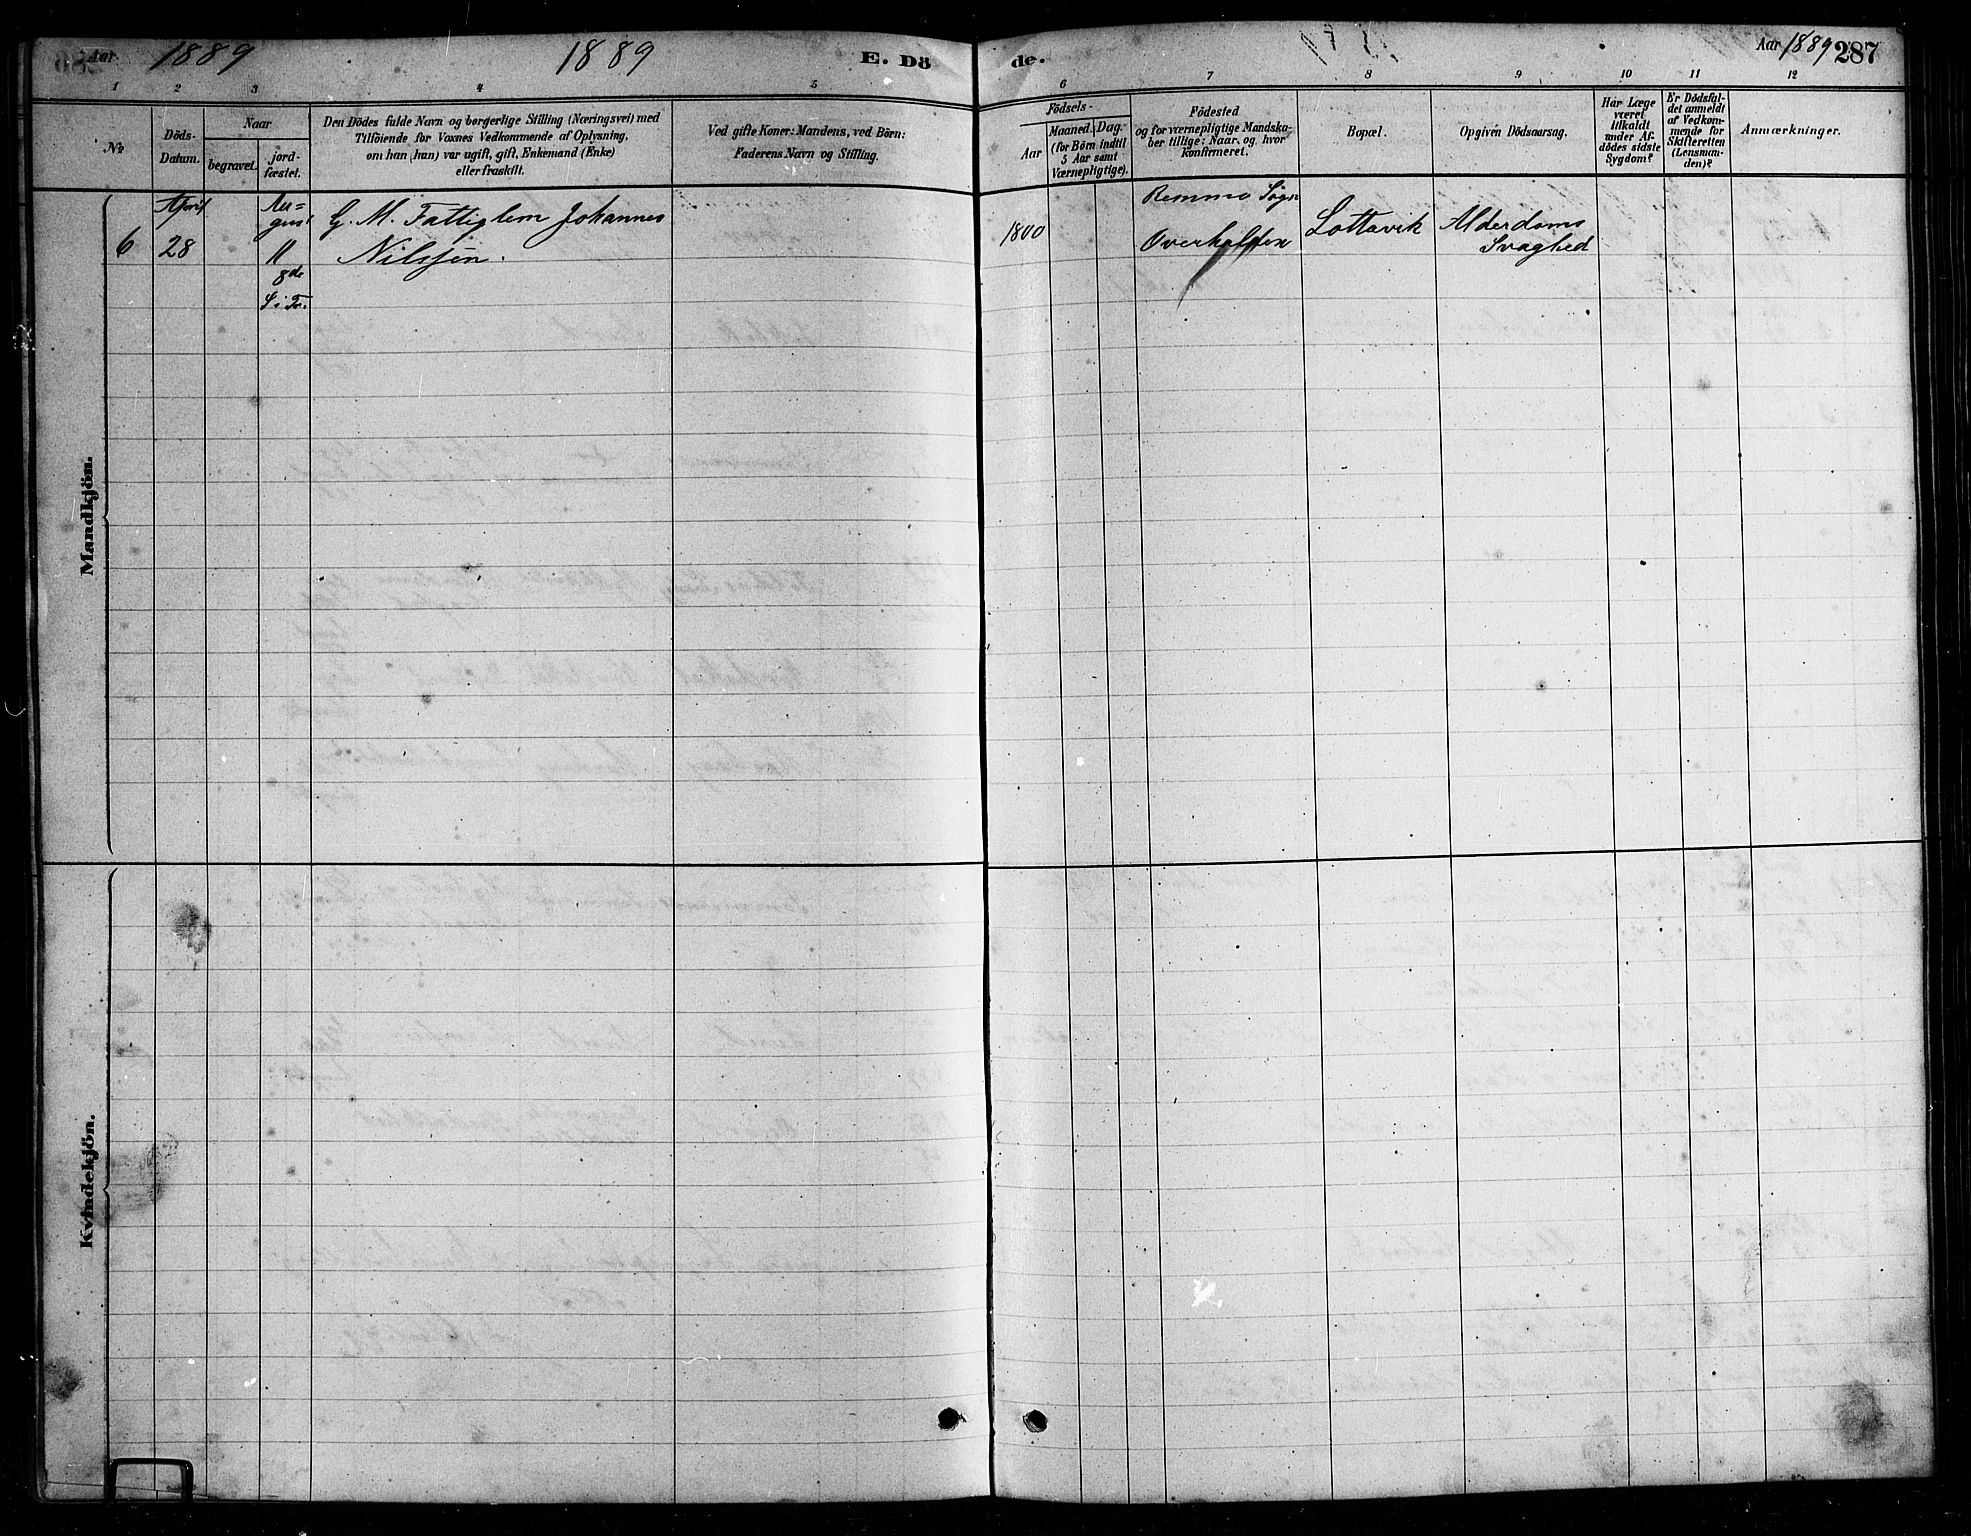 Aar 1889
1889
E. Dö
de.
Aar 1889 287
1 2 3 4 5 6 7 8 9 10 11 12
№
Döds-
Datum.
Naar
begravet.
jord-
fæstet.
Den Dödes fulde Navn og borgerlige Stilling (Næringsvei) med
Tilföiende for Voxnes Vedkommende af Oplysning,
om han (hun) var ugift, gift, Enkemand (Enke)
eller fraskilt.
Ved gifte Koner: Mandens, ved Börn:
Faderens Navn og Stilling.
Födsels-
Aar
Maaned. Dag.
(for Börn indtil
5 Aar samt
Værnepligtige).
Födested
og for værnepligtige Mandska-
ber tillige: Naar og hvor
konfirmeret.
Bopæl.
Opgiven Dödsaarsag.
Har Læge
været
tilkaldt
under Af-
dödes sidste
Sygdom?
Er Dödsfal-
det anmeldt
af Vedkom-
mende for
Skifteretten
(Lensman-
den)?
Anmærkninger.
Mandkjön.
April
6 28
Au-
gust
11
8de
S. i Tr.
G. M. Fattiglem Johannes
Nilssen.
1800
Remmo Sogn
Overhalden
Lottavik
Alderdoms
Svaghed
Kvindekjön.